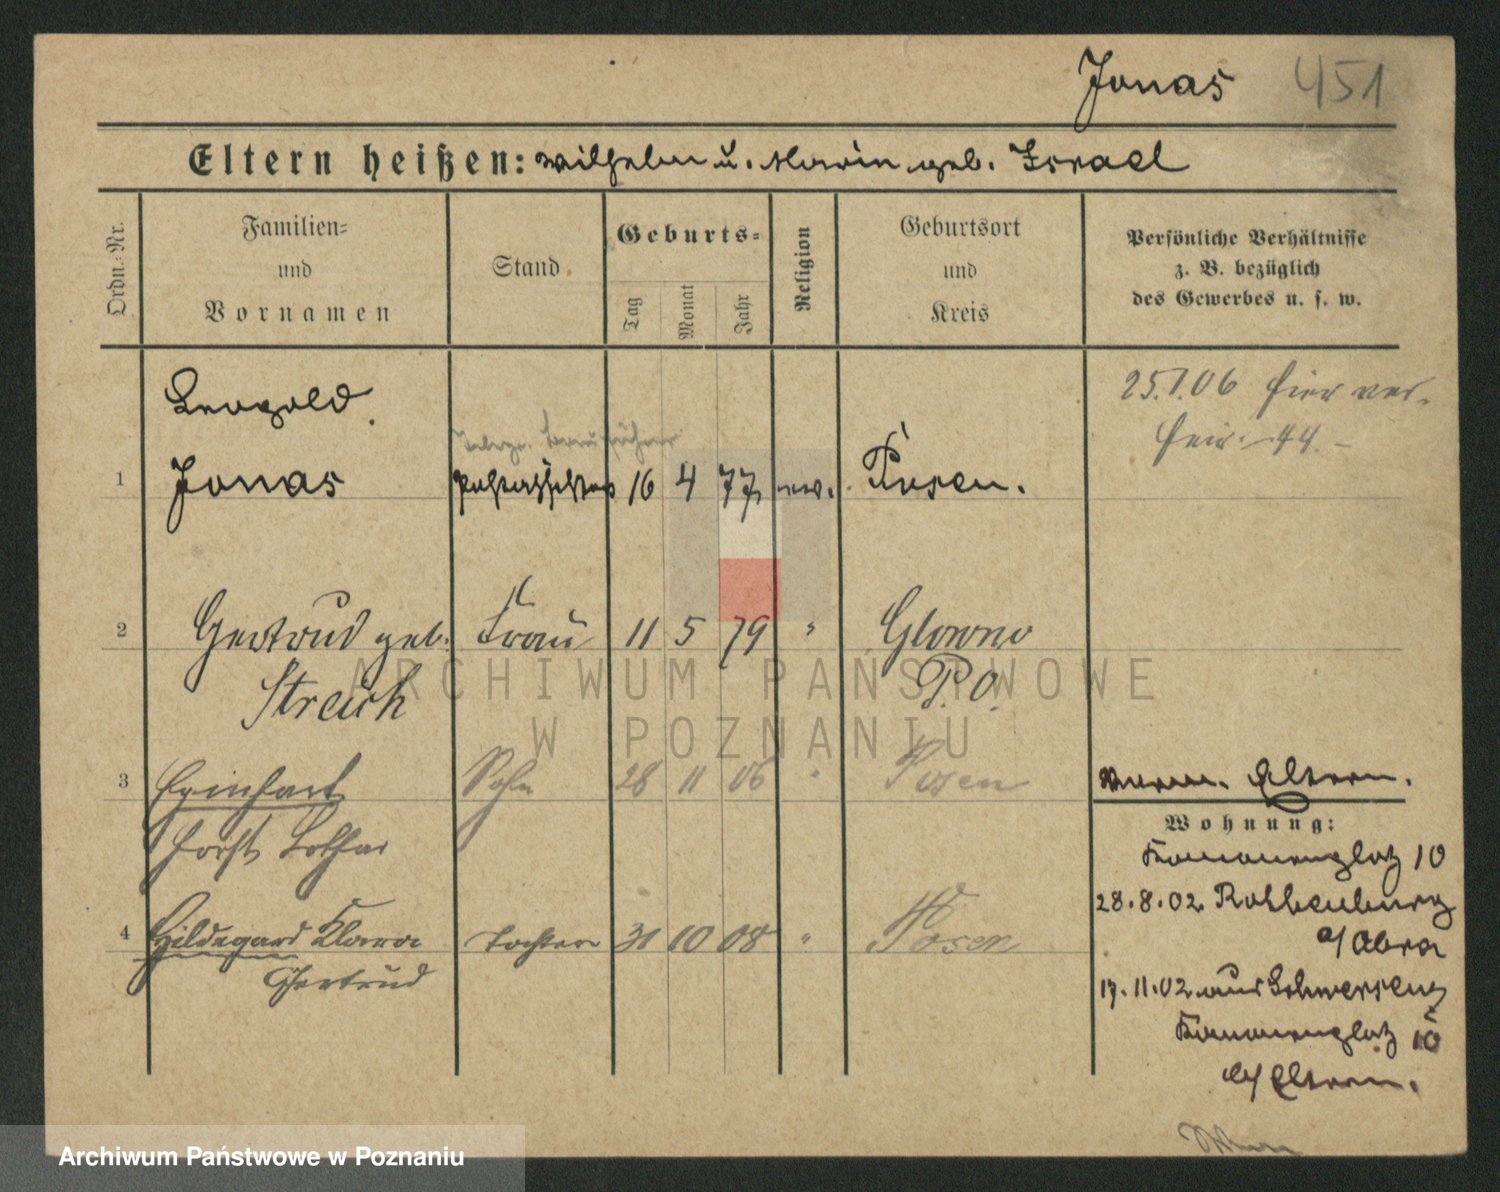 Jonas 451
Eltern heißen: Wilhelm u. Marie geb. Israel
Ordn.-Nr.
Familien-
und
Vornamen
Stand
Geburts-
Tag
Monat
Jahr
Religion
Geburtsort
und
Kreis
Persönliche Verhältnisse
z. B. bezüglich
des Gewerbes u. s. w.
25.1.06 hier ver-
heir. 44
Leopold
1 Jonas Postassistent 16 4 77 ev. Posen.
2 Gertrud geb. Frau 11 5 79 " Glowno
Streich P. O.
3 Eginhart Sohn 28 11 06 " Posen
Horst Lothar
4 Hildegard Klara Tochter 31 10 08 " Posen
Gertrud
Eltern.
Wohnung:
Kanonenplatz 10
28.8.02 Rothenburg
a/Obra
17.11.02 aus Schwersenz
Kanonenplatz 10
b/Eltern.
ARCHIWUM PAŃSTWOWE
W POZNANIU
Archiwum Państwowe w Poznaniu